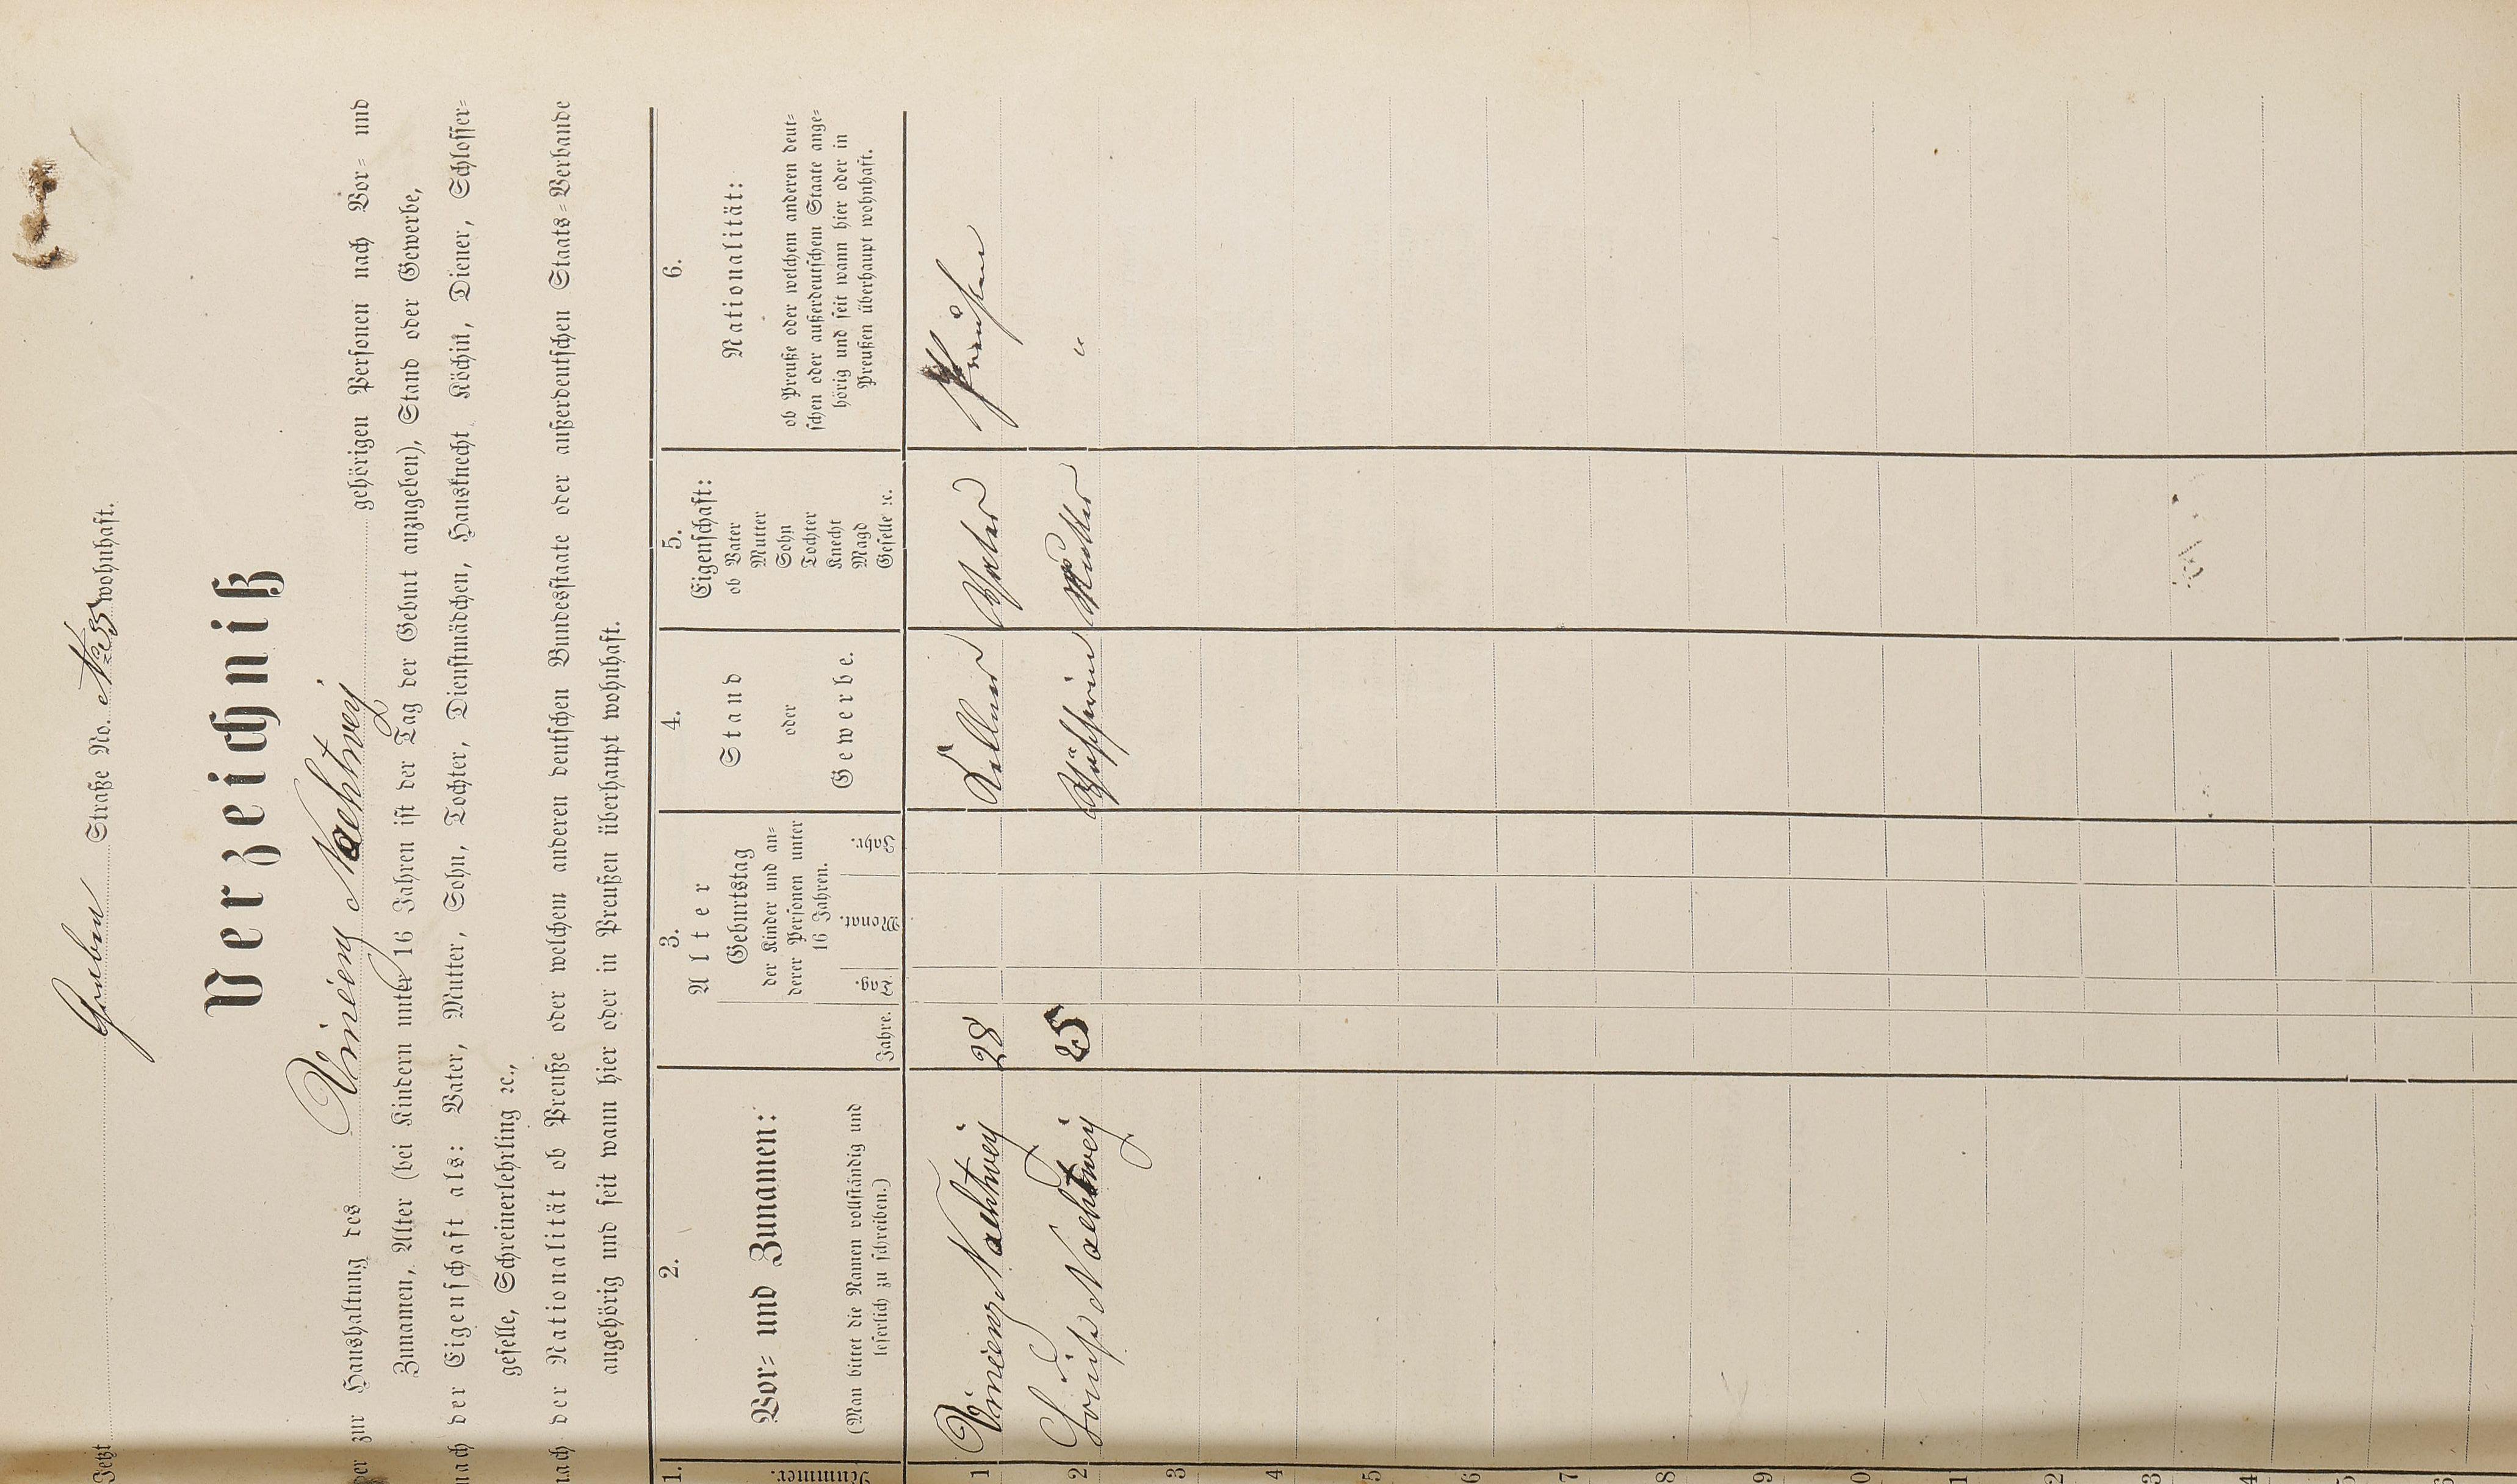 Jetzt Gruben Straße No. No 23 wohnhaft.
Verzeichniß
der zur Haushaltung des Vincenz Nachtwey gehörigen Personen nach Vor= und
Zunamen, Alter (bei Kindern unter 16 Jahren ist der Tag der Geburt anzugeben), Stand oder Gewerbe,
nach der Eigenschaft als: Vater, Mutter, Sohn, Tochter, Dienstmädchen, Hausknecht, Köchin, Diener, Schlosser=
geselle, Schreinerlehrling ꝛc.,
nach der Nationalität ob Preuße oder welchem anderen deutschen Bundesstaate oder außerdeutschen Staats=Verbande
angehörig und seit wann hier oder in Preußen überhaupt wohnhaft.
1.
Nummer.
2.
Vor= und Zunamen:
(Man bittet die Namen vollständig und
leserlich zu schreiben.)
3.
Alter
Jahre.
Geburtstag
der Kinder und an=
derer Personen unter
16 Jahren.
Tag. Monat. Jahr.
4.
Stand
oder
Gewerbe.
5.
Eigenschaft:
ob Vater
Mutter
Sohn
Tochter
Knecht
Magd
Geselle ꝛc.
6.
Nationalität:
ob Preuße oder welchem anderen deut=
schen oder außerdeutschem Staate ange=
hörig und seit wann hier oder in
Preußen überhaupt wohnhaft.
1 Vincenz Nachtwey 28 Kellner Vater Preußen
2 Louise Nachtwey 25 Mutter "
3
4
5
6
7
8
9
0
1
2
3
4
5
6